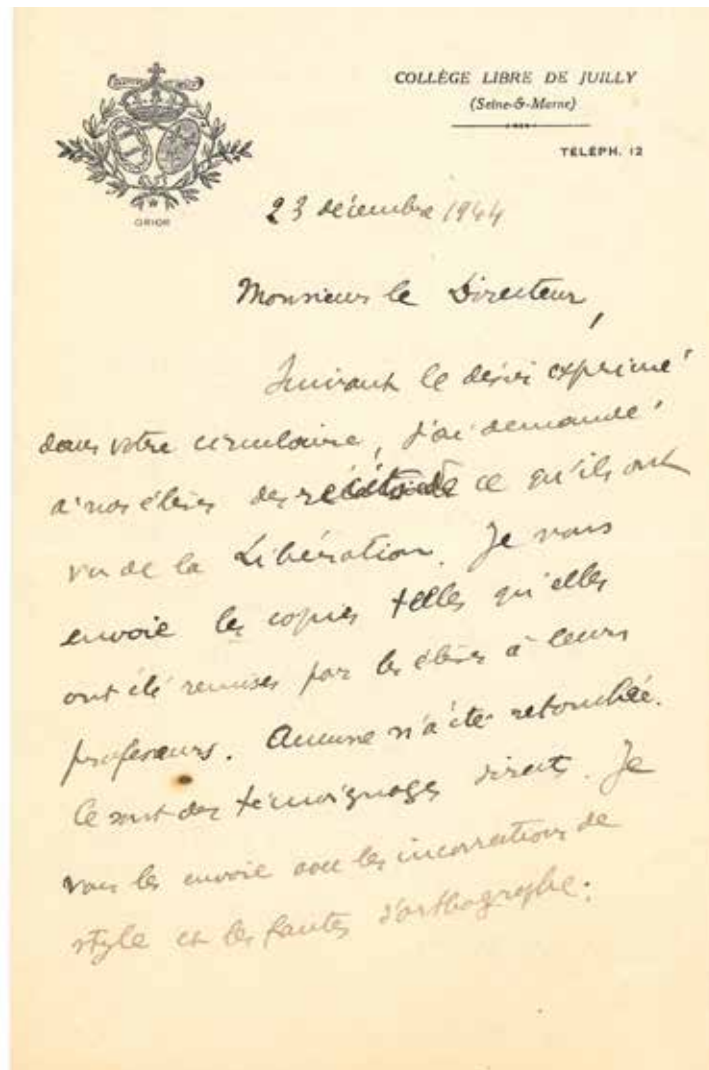 COLLÈGE LIBRE DE JUILLY
(Seine-&-Marne)
TÉLÉPH. 12
ORIOR
23 décembre 1944
Monsieur le Directeur,
Suivant le désir exprimé
dans votre circulaire, j'ai demandé
à nos élèves des récits de ce qu'ils ont
vu de la Libération. Je vous
envoie les copies telles qu'elles
ont été remises par les élèves à leurs
professeurs. Aucune n'a été retouchée.
Ce sont des témoignages directs. Je
vous les envoie avec les incorrections de
style et les fautes d'orthographe.